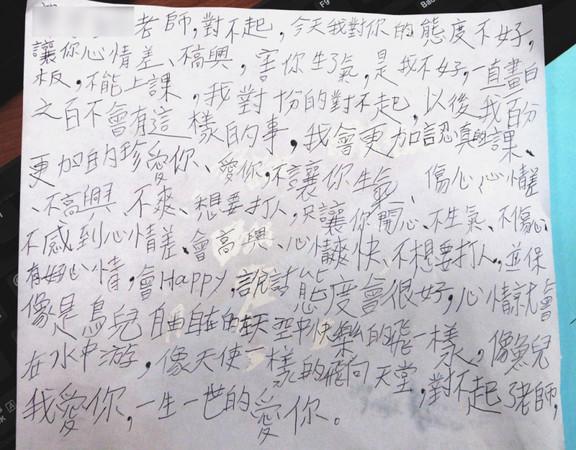 老師,對不起,今天我對你的態度不好,
讓你心情差、不高興,害你生了氣,是我不好,一直畫白
板,不能上課,我對扮的對不起,以後我百份
之百不會有這樣的事,我會更加認真的課、
更加的珍愛你、愛你,不讓你生氣、傷心、心情差
、不高興、不爽、想要打人,只讓你開心、不生氣、不傷心、
不感到心情差、會高興、心情爽快、不想要打人,並保
有好心情,會Happy,說話態度會很好,心情就會
像是鳥兒自由自在的在天空中快樂的飛一樣,像魚兒
在水中游,像天使一樣的飛向天堂,對不起老師,
我愛你,一生一世的愛你。